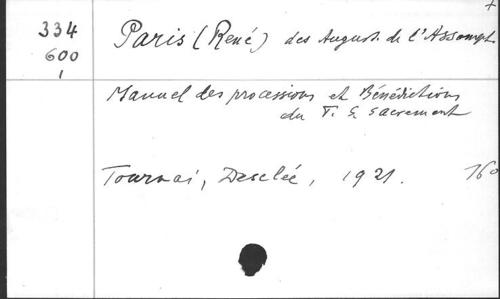 +
334 Paris (René) des August. de l'Assompt.
600
1
Manuel des processions et Bénédictions
du T. S. Sacrement
Tournai, Desclée, 1921. 160